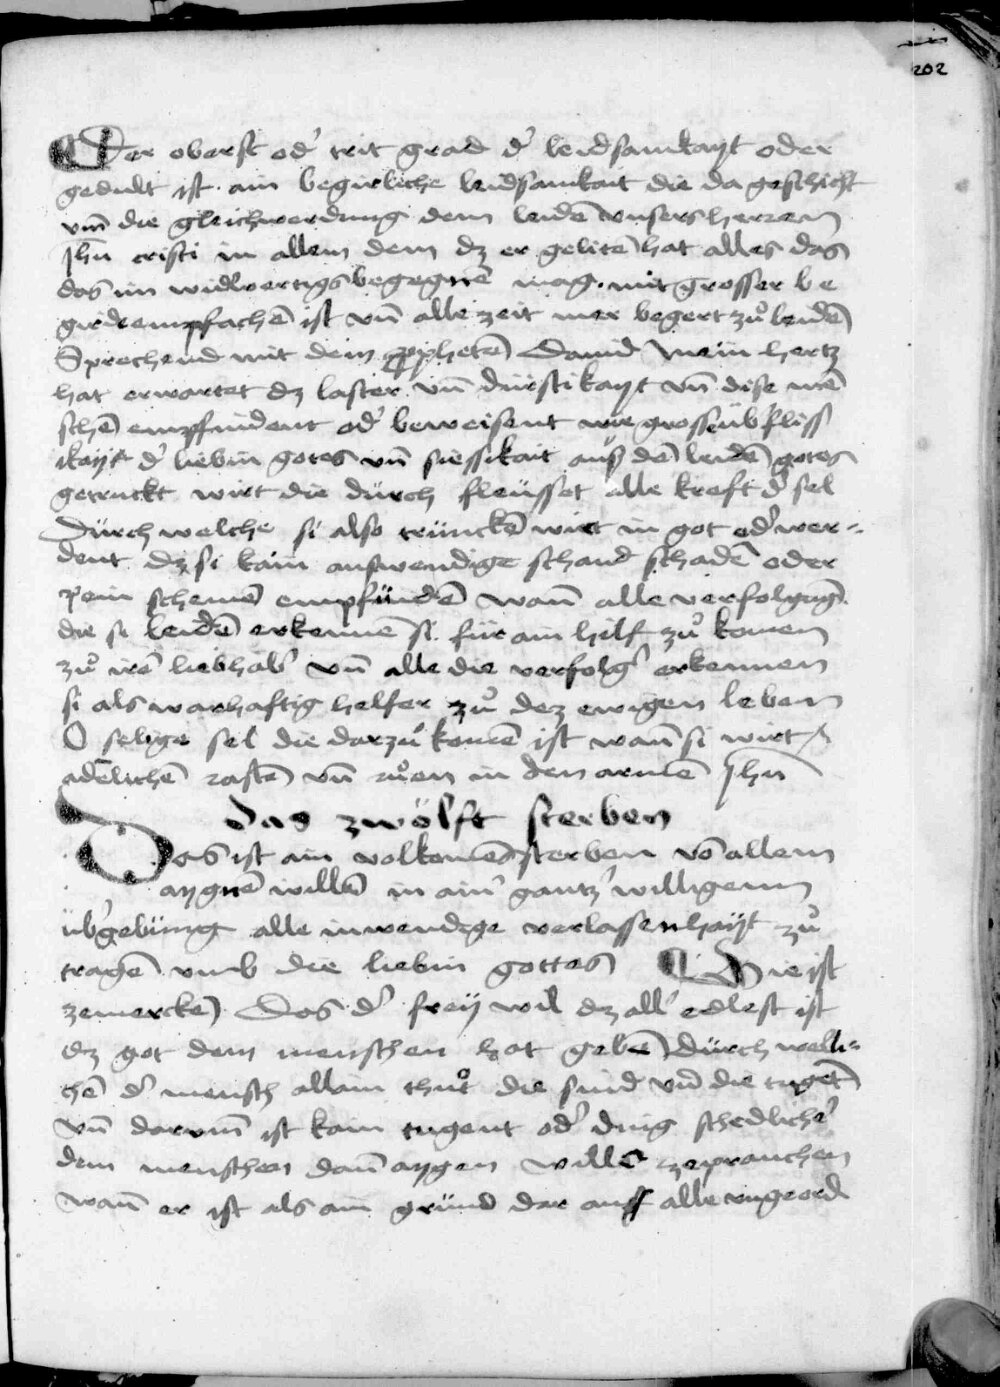 202
¶ Der oberst od' trit grad d' leidsamkayt oder
gedult ist ain begirliche leidsamkait die da geschicht
vm̄ die gleichwerdung dem leidē vnsers herren
Jhū cristi in allem dem dz er gelitē hat alles das
das im widerwertigs begegnē mag. mit grosser be
gird empfachē ist vn̄ alle zeit mer begert zů leidē
Sprechend mit dem pphetē Dauid Mein hertz
hat erwartet dz laster vn̄ dürstikayt vn̄ dise mē
schē empfindent od' beweisent wie gross üb'fliss
ikayt d' liebin gotes vn̄ siessikait auß dē leidē gotes
getruckt wirt die dürch fleüsset alle kreft d' sel
Dürch welche si also trünckē wirt in got od' wer-
dent dz si kain auswendige schand schadē oder
pein schemē empfündē wan̄ alle verfolgūg
die si leidē erkennē si für ain hilf zů komen
zů irē liebhab' vn̄ alle die verfolg' erkennen
si als warhaftig helfer zů dez ewigen leben
O selige sel die darzů komē ist wan̄ si wirt
adēlichē rastē vn̄ růen in den armē Jhū
das zwölft sterben
Das ist ain volkomēs sterben vō allem
aygnē willē in ain' gantz' willigenn
üb'gebüng alle inwendige verlassenhayt zů
tragē vmb die liebin gottes ¶ Hie ist
zemerckē Das d' frey wil dz all' edlest ist
dz got dem menschen hat gebē dürch welli-
chē d' mensch allain thůt die sünd vn̄ die tugēt
vn̄ darum̄ ist kain tugent od' ding schedlich'
dem menschen dan̄ aygen wille zeprauchen
wan̄ er ist als ain gründ dar auff alle vngeord